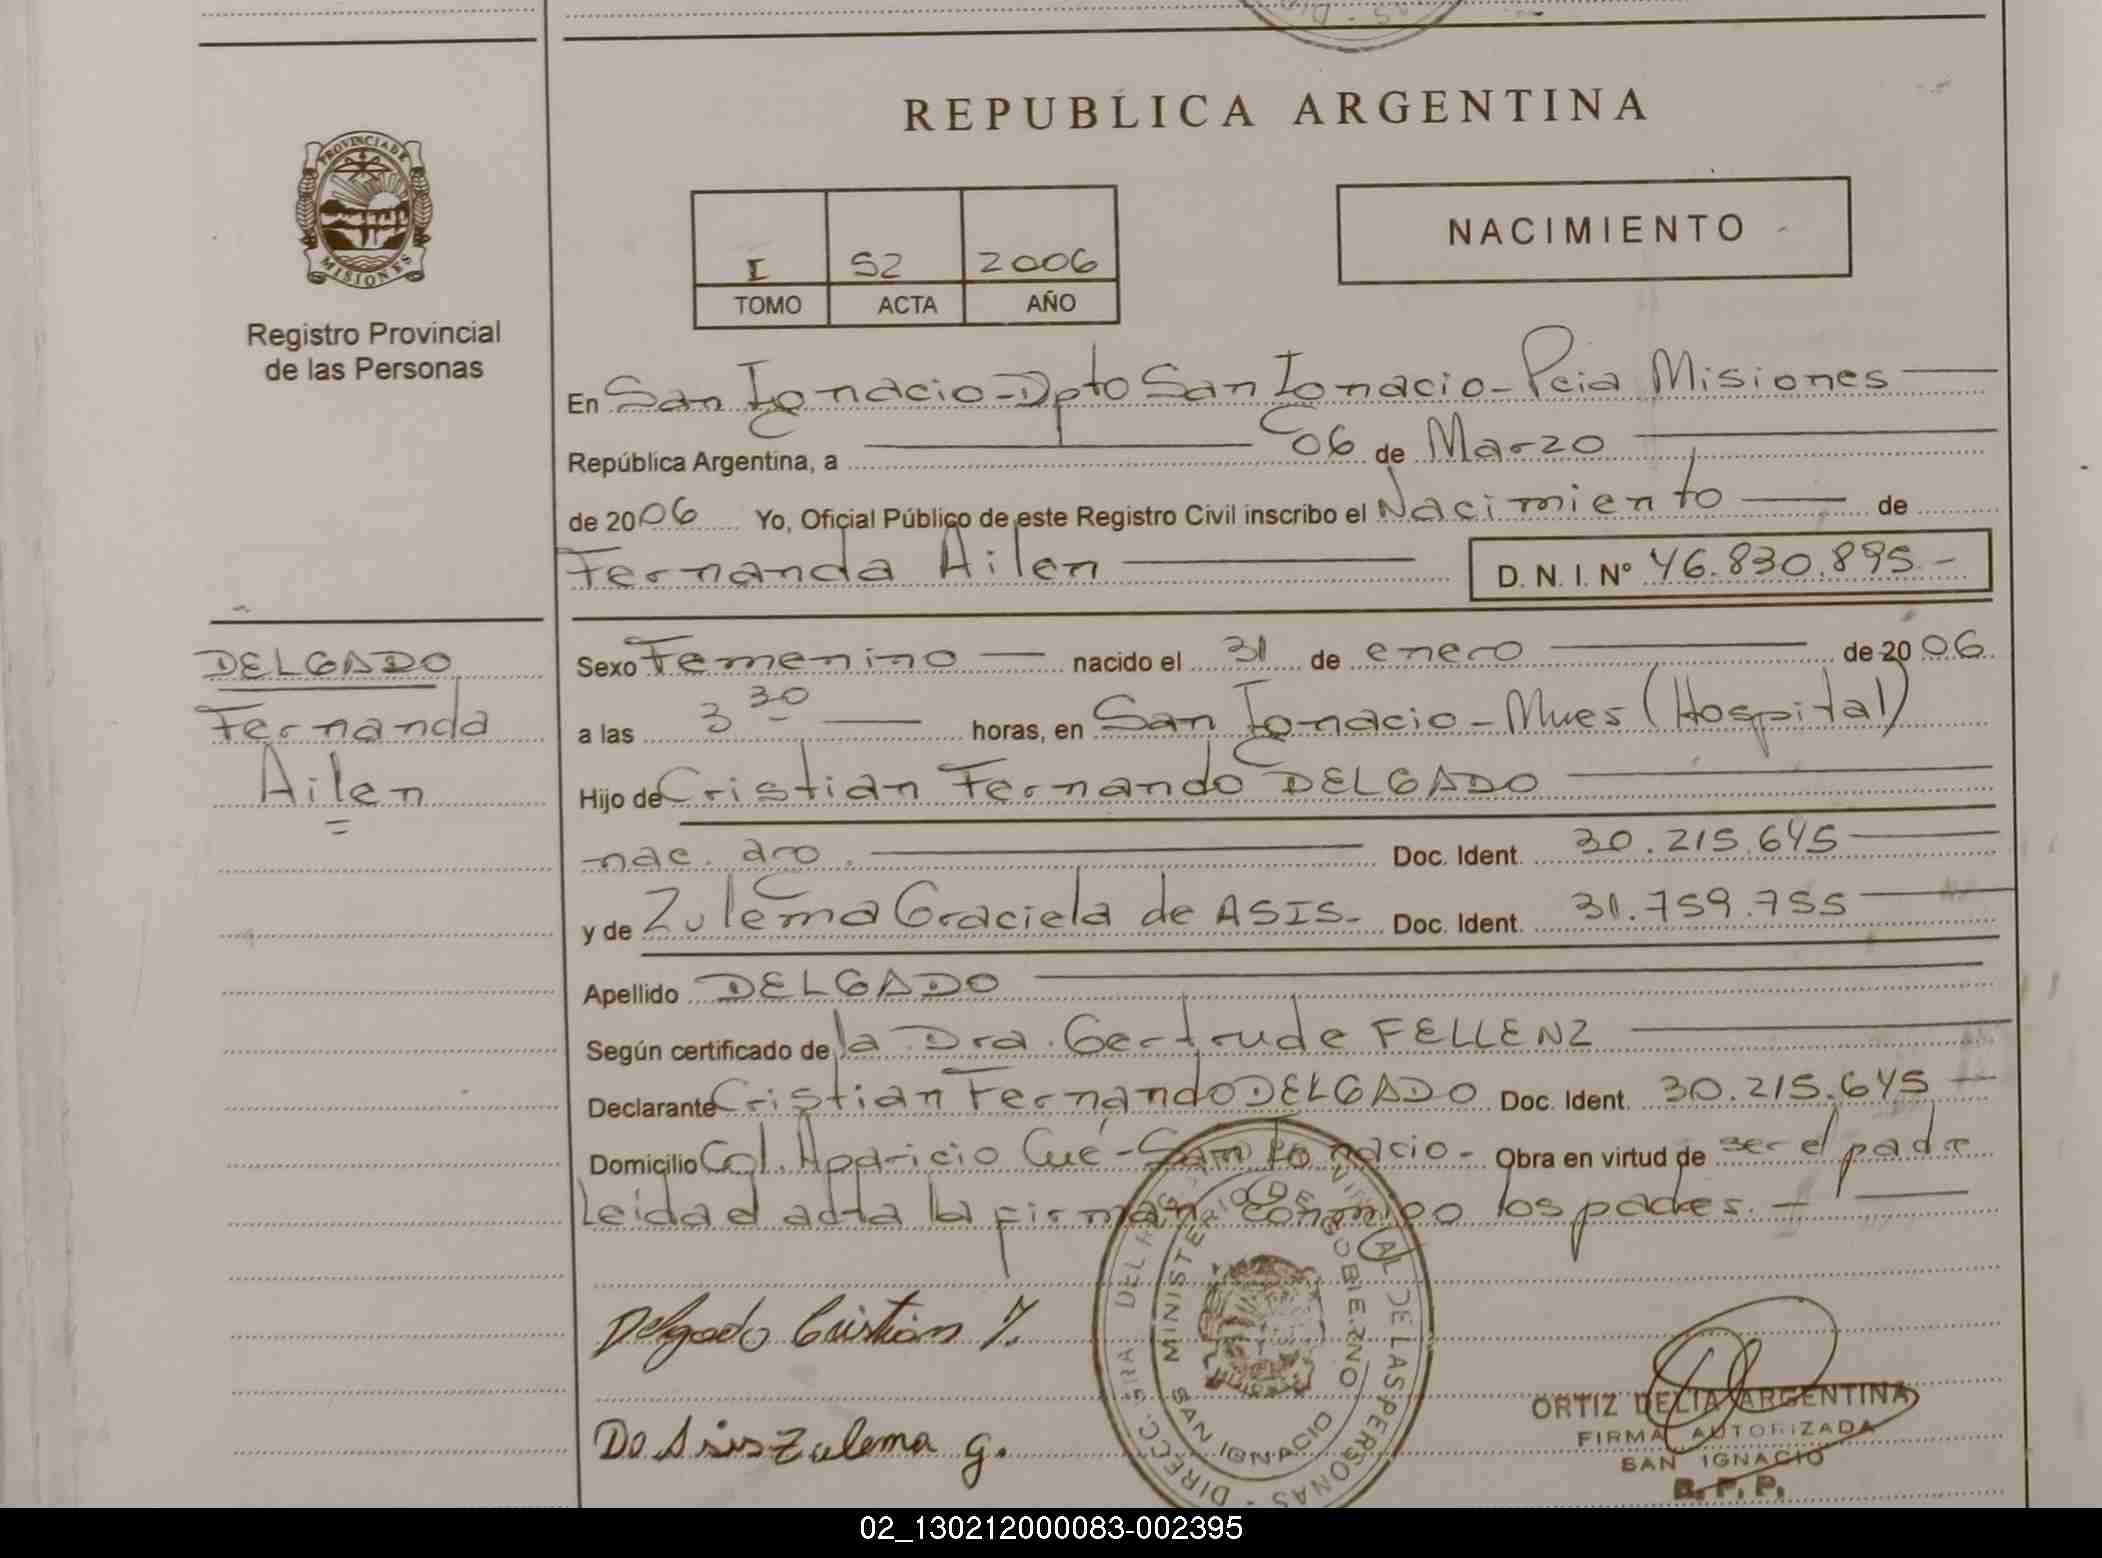 REPUBLICA ARGENTINA
PROVINCIA DE
MISIONES
Registro Provincial
de las Personas
I 52 2006
TOMO ACTA AÑO
NACIMIENTO
En San Ignacio - Dpto San Ignacio - Pcia Misiones
República Argentina, a 06 de Marzo
de 2006 Yo, Oficial Público de este Registro Civil inscribo el Nacimiento de
Fernanda Ailen D. N. I. Nº 46.830.895.-
DELGADO
Fernanda
Ailen
Sexo Femenino nacido el 31 de enero de 2006.
a las 3 30 horas, en San Ignacio - Mnes (Hospital)
Hijo de Cristian Fernando DELGADO
nac. arg. Doc. Ident. 30.215.645
y de Zulema Graciela de ASIS.- Doc. Ident. 31.759.755
Apellido DELGADO
Según certificado de la Dra. Gertrude FELLENZ
Declarante Cristian Fernando DELGADO Doc. Ident. 30.215.645
Domicilio Col. Aparicio Cué - San Ignacio - Obra en virtud de ser el padre
Leida el acta la firman conmigo los padres. -
Delgado Cristian F.
De Asis Zulema G.
MINISTERIO DE GOBIERNO
SAN IGNACIO
ORTIZ DELIA ARGENTINA
FIRMA AUTORIZADA
SAN IGNACIO
R. P. P.
02_130212000083-002395